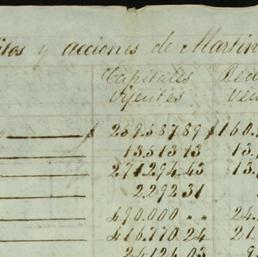 itos y acciones de Martin
Capitales Red
Vijentes Ven
$ 259.587.89 $ 160.
13.513 13 13.
271.294.43 13.
2.292 31
490.000 " " 24.
416.770.24 21.
24126.03